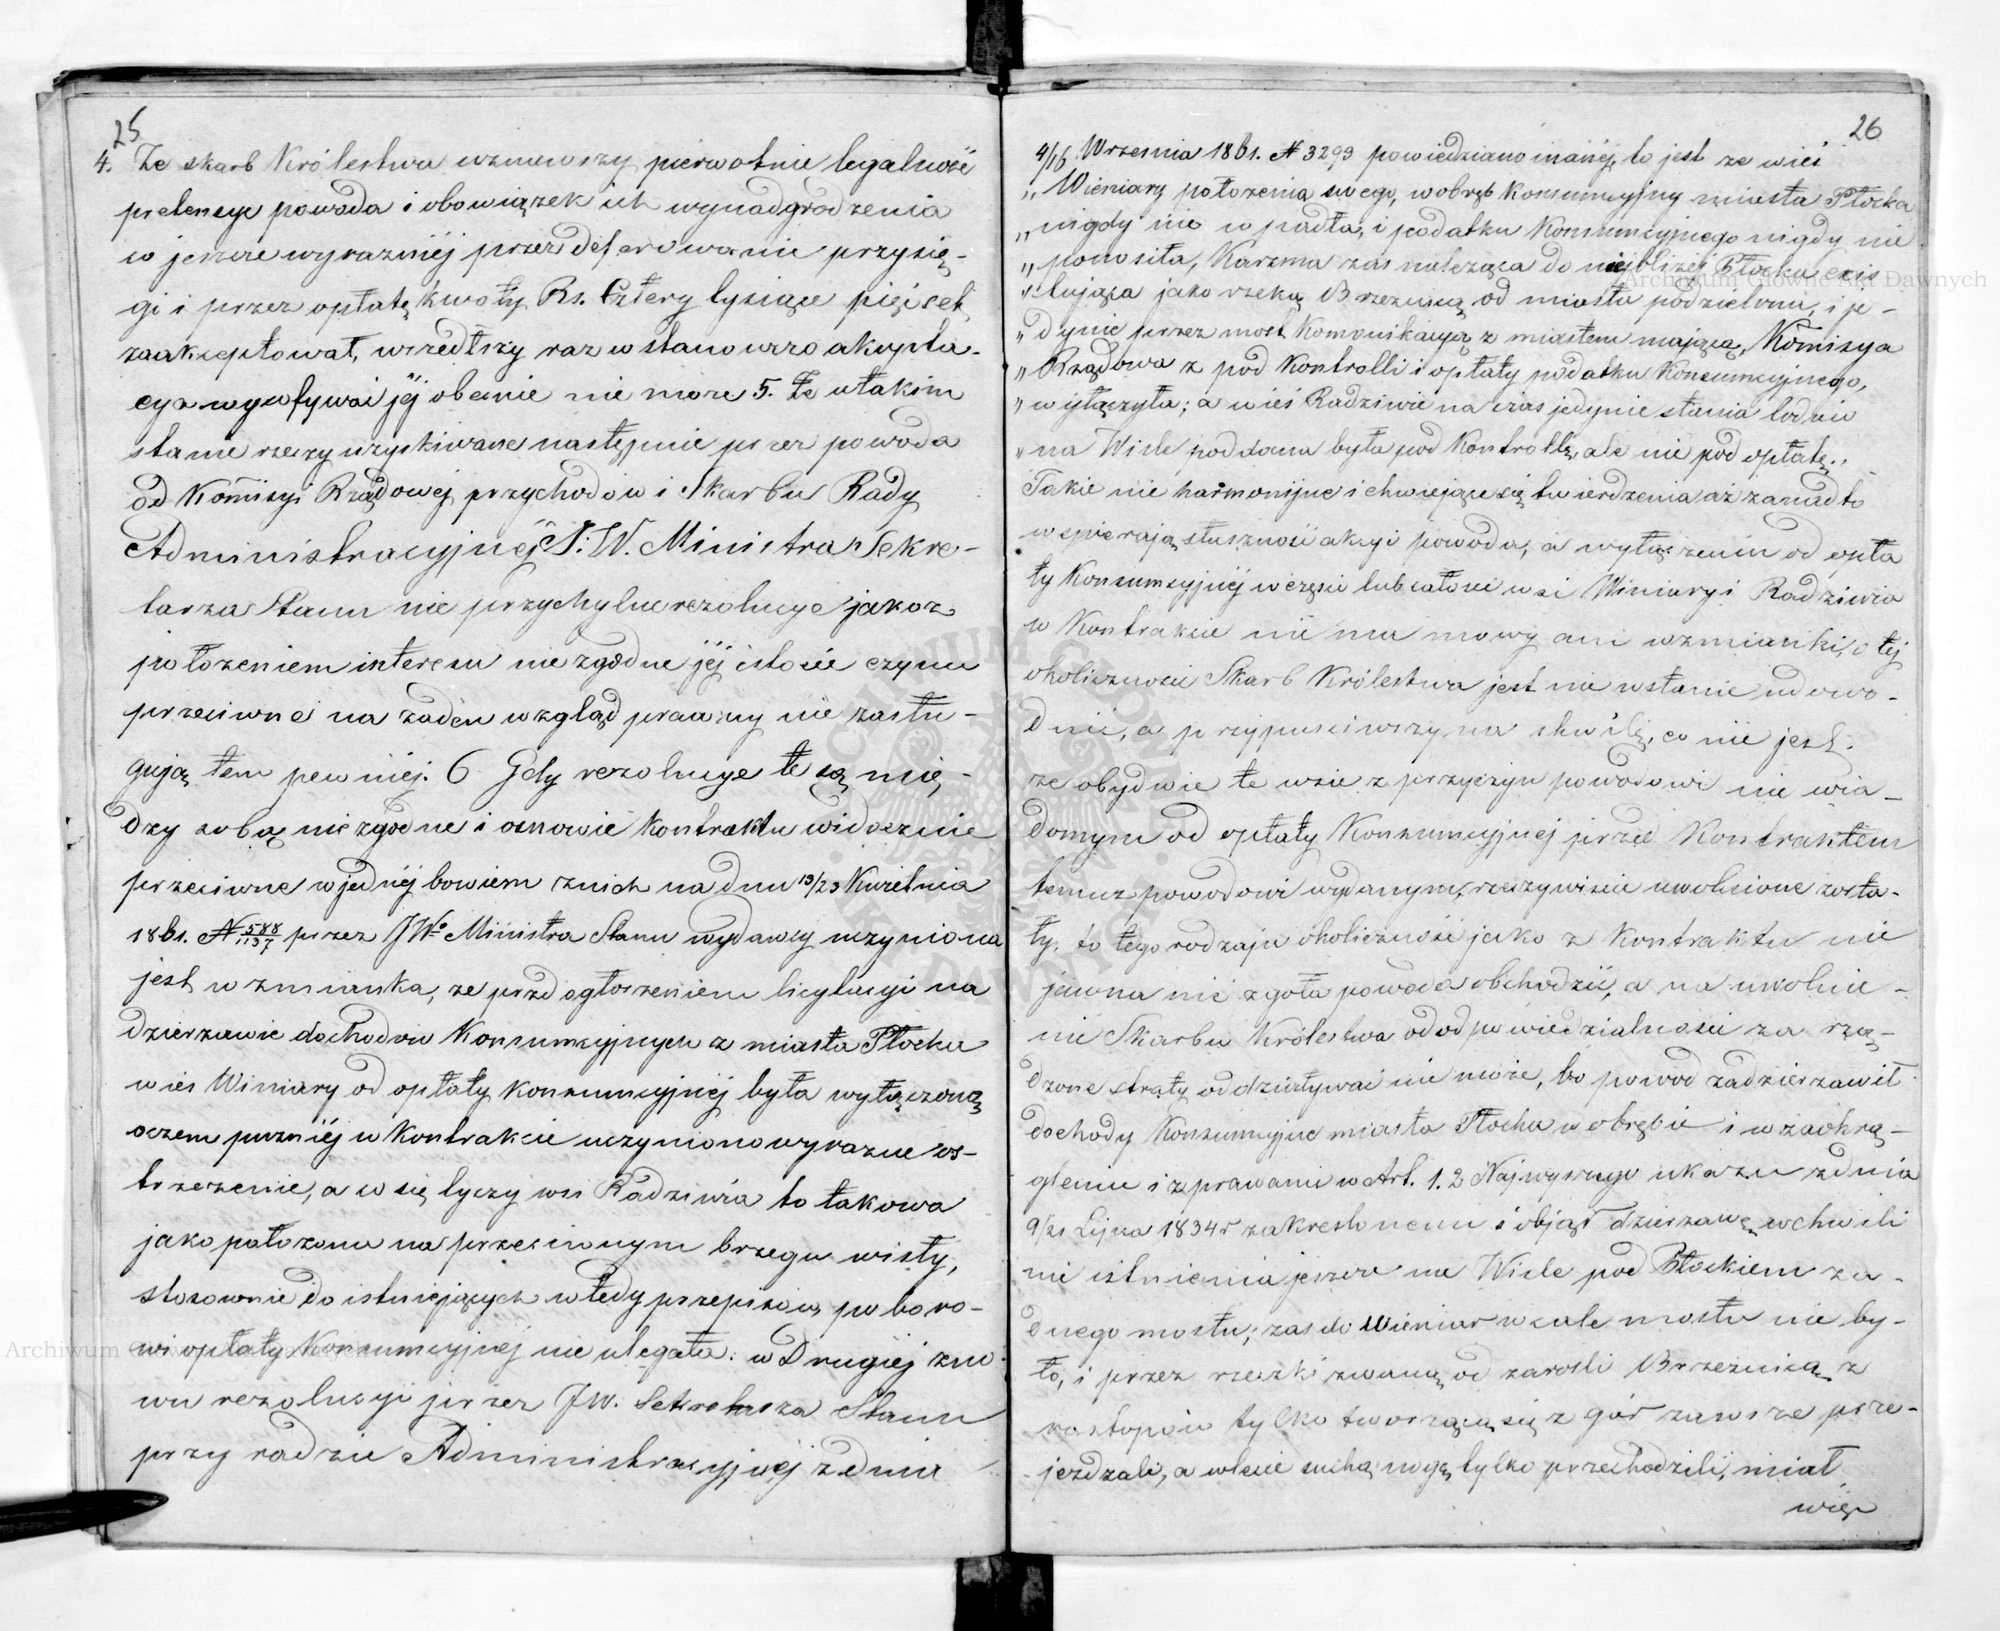 25
4. Że skarb Królestwa uznawszy pierwotnie legalność
pretensye powoda i obowiązek ich wynadgrodzenia
co jeszcze wyrazniéj przez deferowanie przysię-
gi i przez opłatę kwoty Rs. Cztery tysiące pięćset
zaakceptował, wszedłszy raz w stanowczo akcepta-
cyą wycofywać jéj obecnie nie może 5. Że w takim
stanie rzeczy uzyskiwane następnie przez powoda
od Kommisyi Rządowéj przychodów i Skarbu Rady
Administracyjnéj J.W. Ministra Sekre-
tarza Stanu nie przychylne rezolucye jako z
położeniem interesu niezgodne jéj istocie czynu
przeciwne na żaden wzgląd prawny nie zasłu-
gują tem pewniéj. 6 Gdy rezolucye te są mię-
dzy sobą niezgodne i osnowie Kontraktu widocznie
przeciwne w jednéj bowiem z nich na dniu 13/23 Kwietnia
1861. N 588/1137 przez JWo Ministra Stanu wydawcy uczyniona
jest wzmianka, ze przed ogłoszeniem licytacyi na
dzierzawie dochodów Konsumcyjnych z miasta Płocka
wies Winiary od opłaty konsumcyjnéj była wyłączoną
oczem puzniéj w Kontrakcie uczyniono wyrazne zas-
trzezenie, a co się tyczy wsi Radziwia to takowa
jako położona na przeciwnym brzegu wisły,
stosownie do istniejących wtedy przepisów, poboro-
wi opłaty Konsumcyjnej nie ulegała: w Drugiéj zno-
wu rezolucyi przez JW. Sekretarza Stanu
przy radzie Administracyjnéj z dnia
26
4/16 Wrzesnia 1861. N 3293 powiedziano inaniéj, to jest ze wieś
„ Wieniary położenia swego, w obręb konsumcyjny miasta Płocka
„ nigdy nie wpadła, i podatku Konsumcyjnego nigdy nie
„ ponosiła, Karzma zas należąca do niéj bliżéj Płocka exis
„ tująca jako rzeką Brzeznicą od miasta podzielona, i je-
„ dynie przez most Komonikacyą z miastem mającą, Komisya
„ Rządowa z pod Kontrolli i opłaty podatku Konsumcyjnego,
„ wyłączyła; a wieś Radziwie na czas jedynie stania łodzi
„ na Wiśle poddana była pod Kontrollę, ale nie pod opłatę.„
Takie nie harmonijne i chwiejące się twierdzenia aż zanadto
wspierają słuszność akcyi powoda, a wyłączeniu od opła
ty Konsumcyjnéj w części lub całości wsi Winiary i Radziwia
w Kontrakcie nie ma mowy ani wzmianki, o téj
okoliczności Skarb Królestwa jest nie wstanie udowo-
dnić, a przypuściwszy na chwilę, co nie jest.
ze obydwie te wsie z przyczyn powodowi nie wia-
domym od opłaty Konsumcyjnej przed Kontraktem
temuz powodowi wydanym, rzeczywiscie uwolnione zosta-
ły, to tego rodzaju okoliczność jako z Kontraktu nie
jawna nic zgoła powoda obchodzić, a na uwolnie-
nie Skarbu Królestwa od odpowiedzialności za rzą-
dzone straty oddziaływać nie może, bo powod zadzierzawił
dochody Konsumcyjne miasta Płocka w obrębie i w zaokrą-
gleniu i z prawami w Art. 1. 2 Najwyzszego ukazu z dnia
9/21 Lipca 1834r zakreslonemi i objął dzierzawę w chwili
nie istnienia jeszcze na Wisle pod Płockiem za-
dnego mostu; zas do Wieniar wcale mostu nie by-
ło, i przez rzeczkę zwaną od zarośli Brzeznicą, z
rostopów tylko tworzącą się z gór zawsze prze-
jezdzali, a wlecie suchą nogą tylko przechodzili, miał
więc
Archiwum Główne Akt Dawnych